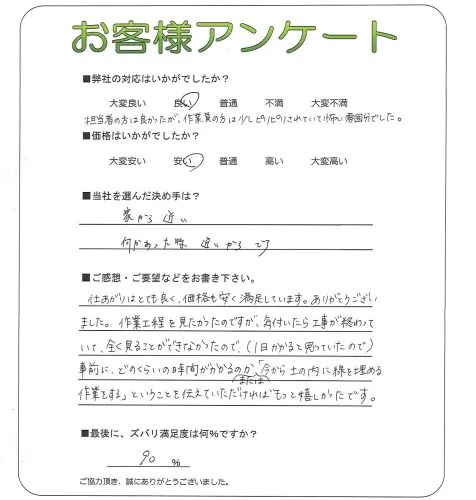 お客様アンケート
■弊社の対応はいかがでしたか？
大変良い 良い 普通 不満 大変不満
担当者の方は良かったが、作業員の方は少しピリピリされていて怖い雰囲気でした。
■価格はいかがでしたか？
大変安い 安い 普通 高い 大変高い
■当社を選んだ決め手は？
家から近い
何かあった時 近いからです
■ご感想・ご要望などをお書き下さい。
仕あがりはとても良く、価格も安く満足しています。ありがとうござい
ました。作業工程を見たかったのですが、気付いたら工事が終わって
いて、全く見ることができなかったので、(1日かかると思っていたので)
事前に、どのくらいの時間がかかるのか、「今から土の内に線を埋める
または
作業をする」ということを伝えていただければもっと嬉しかったです。
■最後に、ズバリ満足度は何%ですか？
90 %
ご協力頂き、誠にありがとうございました。